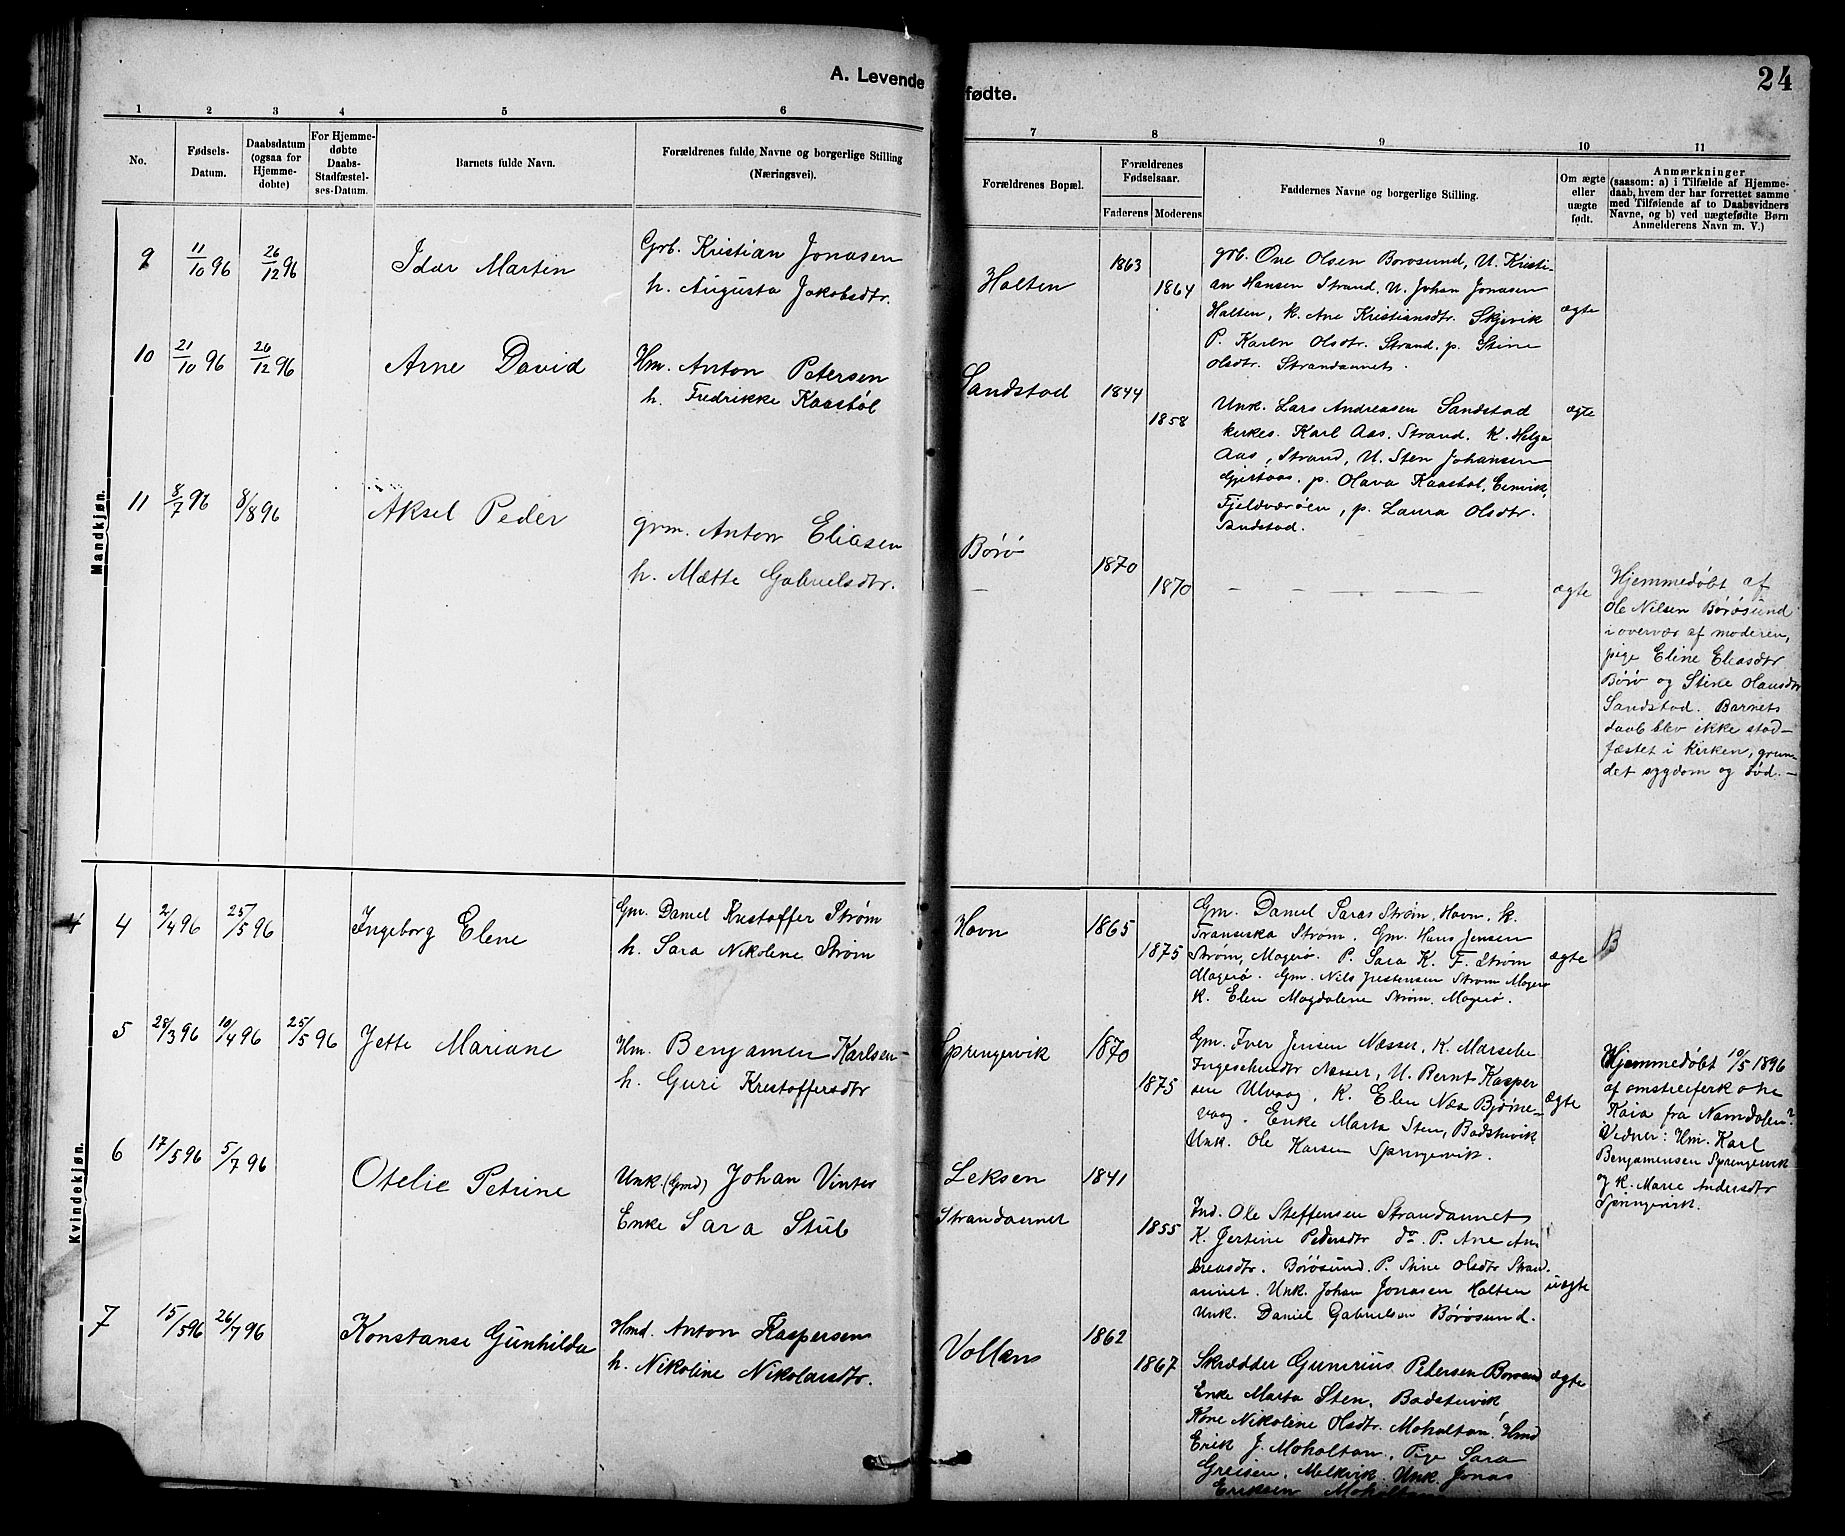 A. Levende
fødte.
24
1 2 3 4 5 6
7 8 9 10 11
No.
Fødsels-
Datum.
Daabsdatum
(ogsaa for
Hjemme-
døbte)
For Hjemme-
døbte
Daabs-
Stadfæstel-
ses-Datum.
Barnets fulde Navn.
Forældrenes fulde Navne og borgerlige Stilling
(Næringsvei).
Forældrenes Bopæl.
Forældrenes
Fødselsaar.
Faderens Moderens
Faddernes Navne og borgerlige Stilling.
Om ægte
eller
uægte
født.
Anmærkninger
(saasom: a) i Tilfælde af Hjemme-
daab, hvem der har forrettet samme
med Tilføiende af to Daabsvidners
Navne, og b) ved uægtefødte Børn
Anmelderens Navn m. V.)
Mandkjøn.
9 11/10 96 26/12 96 Idar Martin
Grb. Kristian Jonasen
h. Augusta Jakobsdtr.
Holten 1863
1864
grb. One Olsen Borosund, U. Kristi-
an Hansen Strand, U. Johan Jonasen
Halten, k. Ane Kristiansdtr. Skjevik
P. Karen Olsdtr. Strand, p. Stine
Olsdtr. Strandannet.
ægte
10 21/10 96 26/12 96 Arne David
Hm. Anton Petersen
h. Fredrikke Kaastøl
Sandstad 1844
1858
Unk. Lars Andreasen Sandstad
kirkes. Karl Aas, Strand. K. Helga
Aas, Strand, U. Sten Johansen
Gjertaas. p. Olava Kaastøl,
Fjeldværøen, p. Laura Olsdtr.
Sandstad.
ægte
11 8/7 96 8/8 96 Aksel Peder
grm. Anton Eliasen
h. Mætte Gabrielsdtr.
Børø 1870
— 1870
— — — — — —
ægte
Hjemmedøbt af
Ole Nilsen Børøsund
i overvær af moderen,
pige Eline Eliasdtr
Børø og Stine Hansdtr
Sandstad. Barnets
daab blev ikke stad-
fæstet i kirken, grun-
det sygdom og død. —
Kvindekjøn.
4 2/4 96 25/5 96 Ingeborg Elene
Gm. Daniel Kristoffer Strøm
h. Sara Nikoline Strøm
Havn 1865
1875
Gm. Daniel Saras Strøm, Havn, k.
Fransiska Strøm. Gm. Hans Jensen
Strøm, Magerø. P. Sara K. F. Strøm
Magerø. Gm. Nils Justensen Strøm Magerø
k. Elen Magdalene Strøm, Magerø.
ægte
B
5 28/3 96 10/4 96 25/5 96 Jette Mariane
Hm. Benjamen Karlsen
h. Guri Kristoffersdtr
Sprengervik 1870
1875
Gm. Iver Jensen Næsser, K. Marsele
Næsser, U. Bernt Kasper
sen Ulvaag, K. Elen Næs Bjørne-
vaag. Enke Marta Sten, Badstuvik
Unk. Ole Hansen Sprengervik.
ægte
Hjemmedøbt 10/5 1896
af
Kaia fra Namdalen?
Vidner: Hm. Karl
Benjamensen Sprengervik
og K. Marie Andersdtr
Sprengervik.
6 17/5 96 5/7 96 Otelie Petrine
Unk. (Gmd) Johan Vinter
Enke Sara Stub
Leksen 1841
Strandannet 1855
Ind. Ole Steffensen Strandannet
K. Jertine Pedersdtr do. P. Ane An-
dreasdtr. Børøsund. P. Stine Olsdtr Stran-
dannet. Unk. Johan Jonasen Halten
Unk. Daniel Gabrielsen Børøsund.
uægte
7 15/5 96 26/7 96 Konstanse Gunhilda
Hmd. Anton Kaspersen
h. Nikoline Nikolaisdtr.
Vollen 1862
1867
Skrædder Gunerius Petersen Børøsund
Enke Marta Sten, Badstuvik
Kone Nikoline Olsdtr. Moholtan, Hmd
Erik J. Moholtan, Pige Sara
Greisen, Melkvik. Unk. Jonas
Eriksen Moholtan
ægte